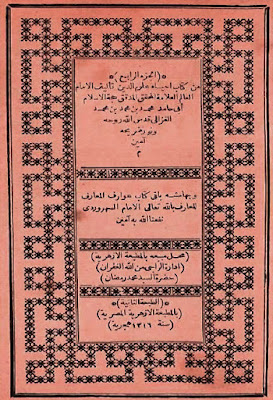 (الجزء الرابع)
من كتاب احياء علوم الدين تأليف الامام
العالم العلامة المحقق المدقق حجة الاسلام
أبى حامد محمد بن محمد بن محمد
الغزالى قدس الله روحه
ونور ضريحه
آمين
٢
وبهامشه باقى كتاب عوارف المعارف
للعارف بالله تعالى الامام السهروردى
نفعنا الله به آمين
(محل مبيعه بالمطبعة الازهرية)
(ادارة الراجى من الله الغفران)
(حضرة السيد محمد رمضان)
(الطبعة الثانية)
(بالمطبعة الازهرية المصرية)
(سنة ١٣١٦ هجرية)